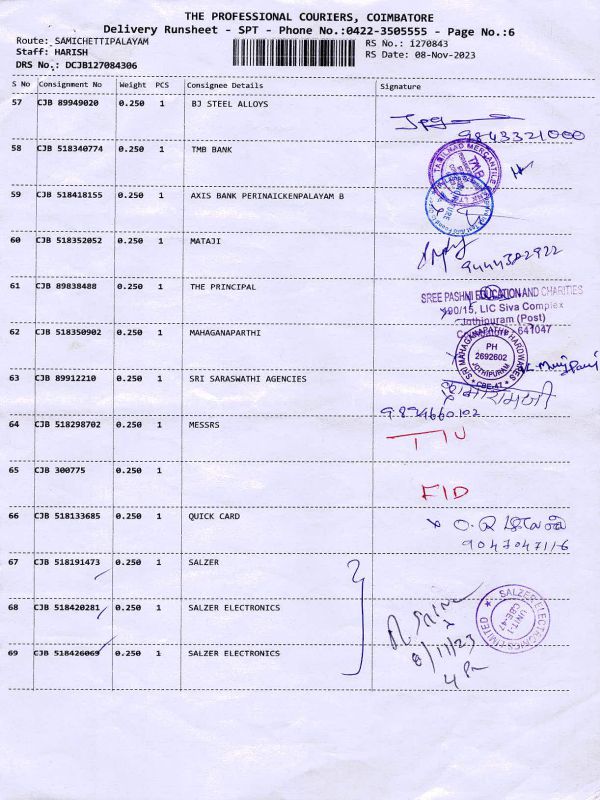 THE PROFESSIONAL COURIERS, COIMBATORE
Delivery Runsheet - SPT - Phone No.:0422-3505555 - Page No.:6
Route: SAMICHETTIPALAYAM
RS No.: 1270843
Staff: HARISH
RS Date: 08-Nov-2023
DRS No.: DCJB127084306
S No Consignment No Weight PCS Consignee Details Signature
57 CJB 89949020 0.250 1 BJ STEEL ALLOYS
9843321000
58 CJB 518340774 0.250 1 TMB BANK
TAMILNAD MERCANTILE
TMB
59 CJB 518418155 0.250 1 AXIS BANK PERINAICKENPALAYAM B
60 CJB 518352052 0.250 1 MATAJI
9444382922
61 CJB 89838488 0.250 1 THE PRINCIPAL
SREE PASHNI EDUCATION AND CHARITIES
LIC Siva Complex
Jothipuram (Post)
641047
62 CJB 518350902 0.250 1 MAHAGANAPARTHI
SRI MAHAGANAPATHI HARDWARES
PH
2692602
JOTHIPURAM
CBE-47
63 CJB 89912210 0.250 1 SRI SARASWATHI AGENCIES
64 CJB 518298702 0.250 1 MESSRS
65 CJB 300775 0.250 1
FID
66 CJB 518133685 0.250 1 QUICK CARD
67 CJB 518191473 0.250 1 SALZER
68 CJB 518420281 0.250 1 SALZER ELECTRONICS
SALZER ELECTRONICS LIMITED
UNIT-I
CBE-47
8/11/23
69 CJB 518426069 0.250 1 SALZER ELECTRONICS
4 Pm